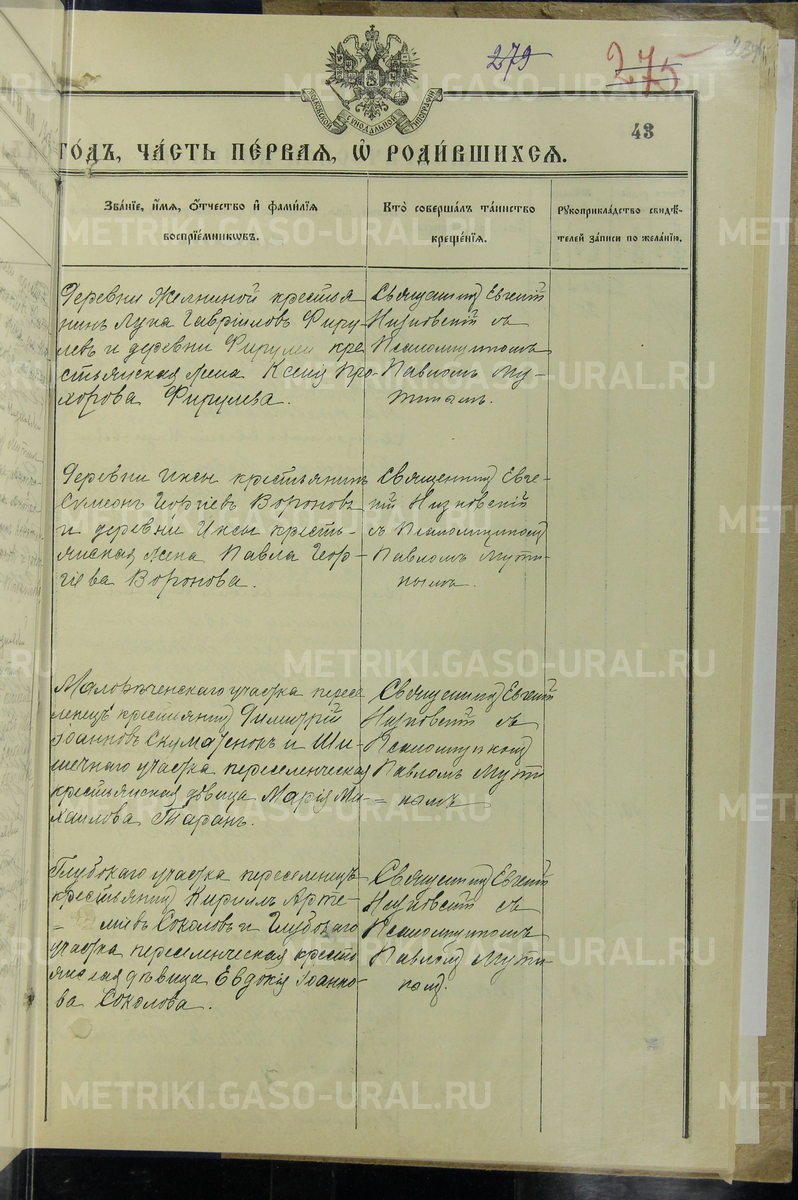 279
275
МОСКОВСКОЙ СѴНОДАЛЬНОЙ ТИПОГРАФІИ
43
ГОДЪ, ЧАСТЬ ПЕРВАЯ, Ѡ РОДИВШИХСЯ.
Званіе, имя, отчество и фамилія
воспріемниковъ.
Кто совершалъ таинство
крещенія.
Рукоприкладство свидѣ-
телей записи по желанію.
Деревни Желниной крестья
нинъ Лука Гавріиловъ Фиру
левъ и деревни Фирулей кре
стьянская жена Ксенія Про-
хорова Фирулева.
Священникъ Евгеній
Низковскій съ
Псаломщикомъ
Павломъ Му-
тинымъ.
Деревни Иксы крестьянинъ
Сѵмеонъ Георгіевъ Вороновъ
и деревни Иксы кресть-
янская жена Павла Геор-
гіева Воронова.
Священникъ Евге-
ній Низковскій
съ Псаломщикомъ
Павломъ Мути-
нымъ.
Малорѣченскаго участка пересе
ленецъ крестьянинъ Димитрій
Іоанновъ и Ши-
шечнаго участка переселенческая
крестьянская дѣвица Марія Ми-
хаилова Таранъ.
Священникъ Евгеній
Низковскій съ
Псаломщикомъ
Павломъ Мути
= нымъ
Глубокаго участка переселенецъ
крестьянинъ Кириллъ Арте-
= міевъ Соколовъ и Глубокаго
участка переселенческая кресть
янская дѣвица Евдокія Іоанно-
ва Соколова.
Священникъ Евгеній
Низковскій съ
Псаломщикомъ
Павломъ Мути
нымъ.
METRIKI.GASO-URAL.RU